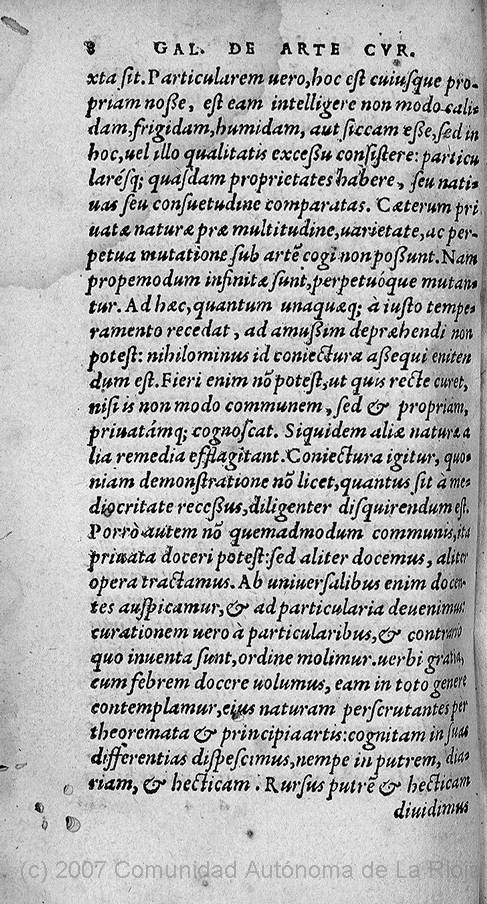 8 GAL. DE ARTE CVR.
xta sit. Particularem uero, hoc est cuiusque pro-
priam nosse, est eam intelligere non modo cali-
dam, frigidam, humidam, aut siccam esse, sed in
hoc, uel illo qualitatis excessu consistere: particu
larésq; quasdam proprietates habere, seu nati-
uas seu consuetudine comparatas. Cæterum pri
uatæ naturæ præ multitudine, uarietate, ac per-
petua mutatione sub artē cogi non possunt. Nam
propemodum infinitæ sunt, perpetuóque mutan-
tur. Ad hæc, quantum unaquæq; à iusto tempe-
ramento recedat, ad amussim depræhendi non
potest: nihilominus id coniectura assequi eniten
dum est. Fieri enim nō potest, ut quis recte curet,
nisi is non modo communem, sed & propriam,
priuatámq; cognoscat. Siquidem aliæ naturæ a
lia remedia efflagitant. Coniectura igitur, quo-
niam demonstratione nō licet, quantus sit à me-
diocritate recessus, diligenter disquirendum est.
Porrò autem nō quemadmodum communis, ita
priuata doceri potest: sed aliter docemus, aliter
opera tractamus. Ab uniuersalibus enim docen-
tes auspicamur, & ad particularia deuenimus
curationem uero à particularibus, & contrario
quo inuenta sunt, ordine molimur. uerbi gratia,
cum febrem docere uolumus, eam in toto genere
contemplamur, eius naturam perscrutantes per
theoremata & principia artis: cognitam in suas
differentias dispescimus, nempe in putrem, dia-
riam, & hecticam. Rursus putrē & hecticam
diuidimus
(c) 2007 Comunidad Autónoma de La Rioja